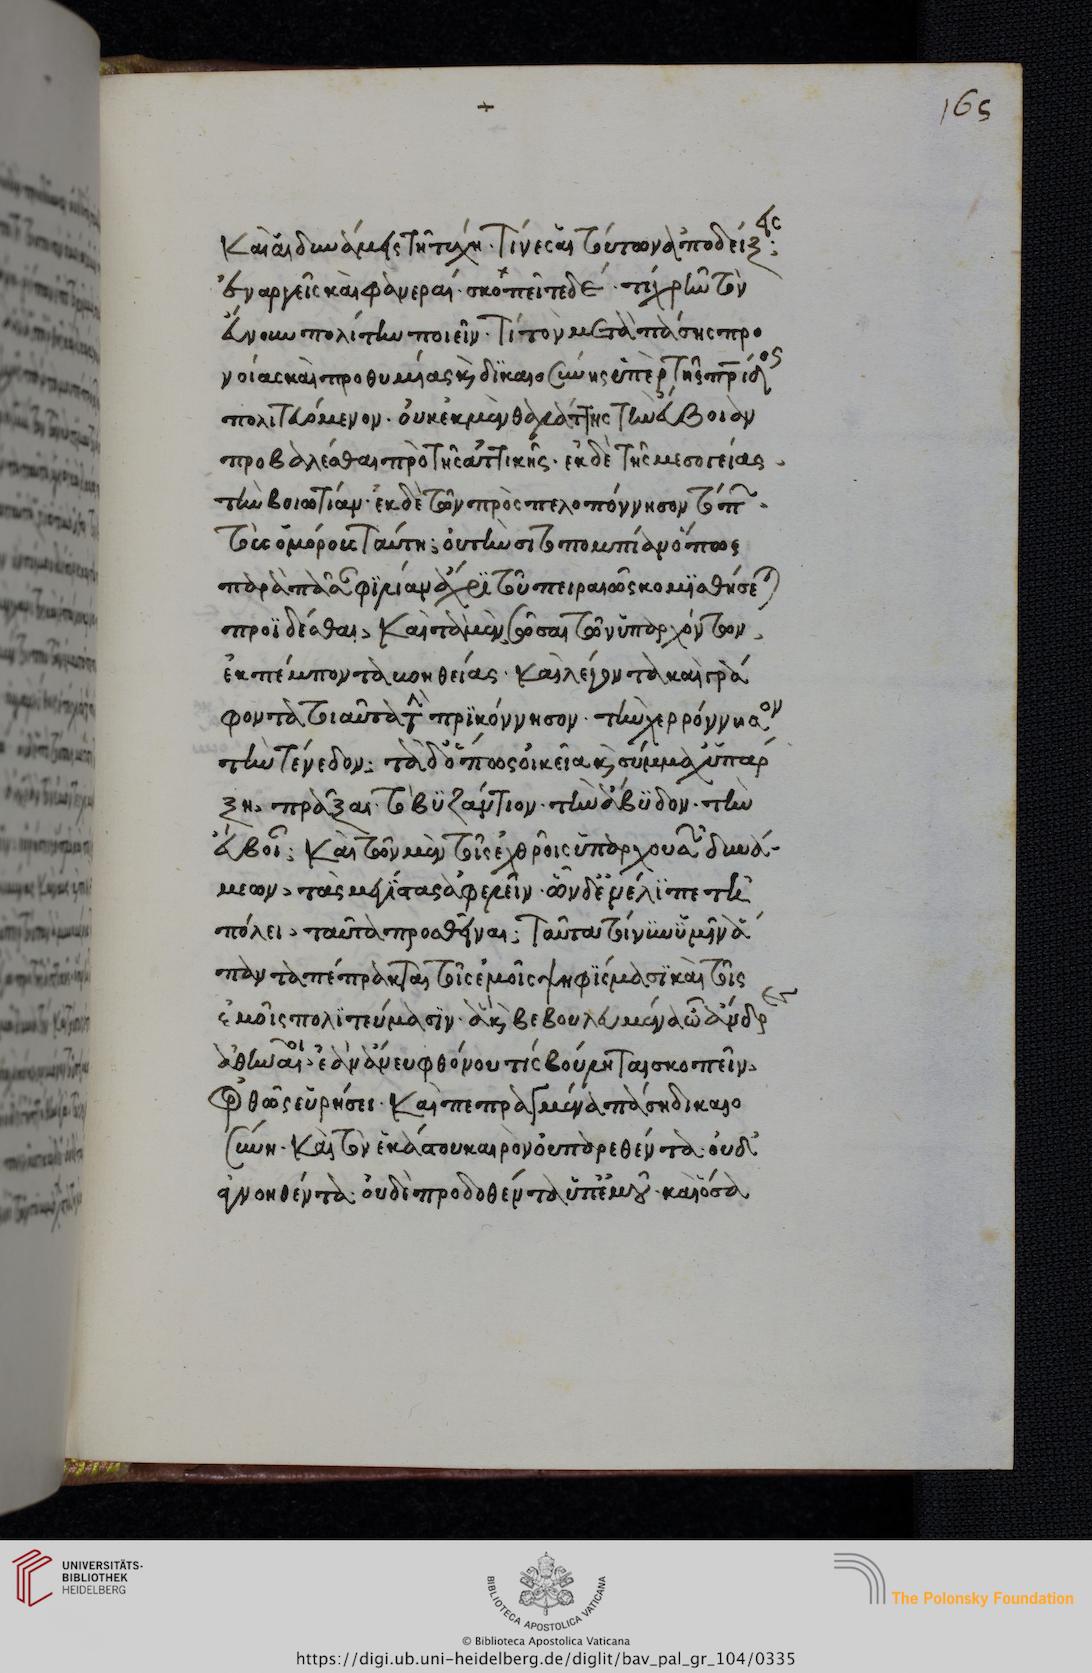 165
καὶ αἱ δυνάμεις ἢ τύχη. τίνες αἱ τούτων ἀποδείξεις:
ἐναργεῖς καὶ φανεραί. σκοπεῖτε δέ. τί χρῆν τὸν
εὔνουν πολίτην ποιεῖν. τί τὸν μετὰ πάσης προ
νοίας καὶ προθυμίας καὶ δικαιοσύνης ὑπὲρ τῆς πατρίδος
πολιτευόμενον. οὐκ ἐκ μὲν θαλάττης τὴν εὔβοιαν
προβαλέσθαι πρὸ τῆς ἀττικῆς. ἐκ δὲ τῆς μεσογείας
τὴν βοιωτίαν. ἐκ δὲ τῶν πρὸς πελοπόννησον τόπων
τοὺς ὁμόρους ταύτῃ; οὐ τὴν σιτοπομπίαν ὅπως
παρὰ πᾶσαν φιλίαν ἄχρι τοῦ πειραιῶς κομισθήσεται
προϊδέσθαι, καὶ τὰ μὲν σῶσαι τῶν ὑπαρχόντων
ἐκπέμποντα βοηθείας. καὶ λέγοντα καὶ γρά
φοντα τοιαῦτα τὴν πρικόννησον. τὴν χερρόννησον
τὴν τένεδον: τὰ δ' ὅπως οἰκεῖα καὶ σύμμαχ' ὑπάρ
ξῃ, πρᾶξαι. τὸ βυζάντιον. τὴν ἄβυδον. τὴν
εὔβοιαν: καὶ τῶν μὲν τοῖς ἐχθροῖς ὑπαρχουσῶν δυνά-
μεων, τὰς μεγίστας ἀφελεῖν. ὧν δ' ἐνέλιπε τῇ
πόλει, ταῦτα προσθεῖναι: ταῦτα τοίνυν ὑμῖν ἅ
παντα πέπρακται τοῖς ἐμοῖς ψηφίσμασι καὶ τοῖς
ἐμοῖς πολιτεύμασιν. ἃ καὶ βεβουλευμένα ὦ ἄνδρες
ἀθηναῖοι, ἐὰν ἄνευ φθόνου τίς βούληται σκοπεῖν,
ὀρθῶς εὑρήσει. καὶ πεπραγμένα πάσῃ δικαιο
σύνῃ. καὶ τὸν ἑκάστου καιρὸν οὐ παρεθέντα. οὐδ'
ἀγνοηθέντα. οὐδὲ προδοθέντα ὑπ' ἐμοῦ. καὶ ὅσα
UNIVERSITÄTS-
BIBLIOTHEK
HEIDELBERG
BIBLIOTECA APOSTOLICA VATICANA
The Polonsky Foundation
© Biblioteca Apostolica Vaticana
https://digi.ub.uni-heidelberg.de/diglit/bav_pal_gr_104/0335